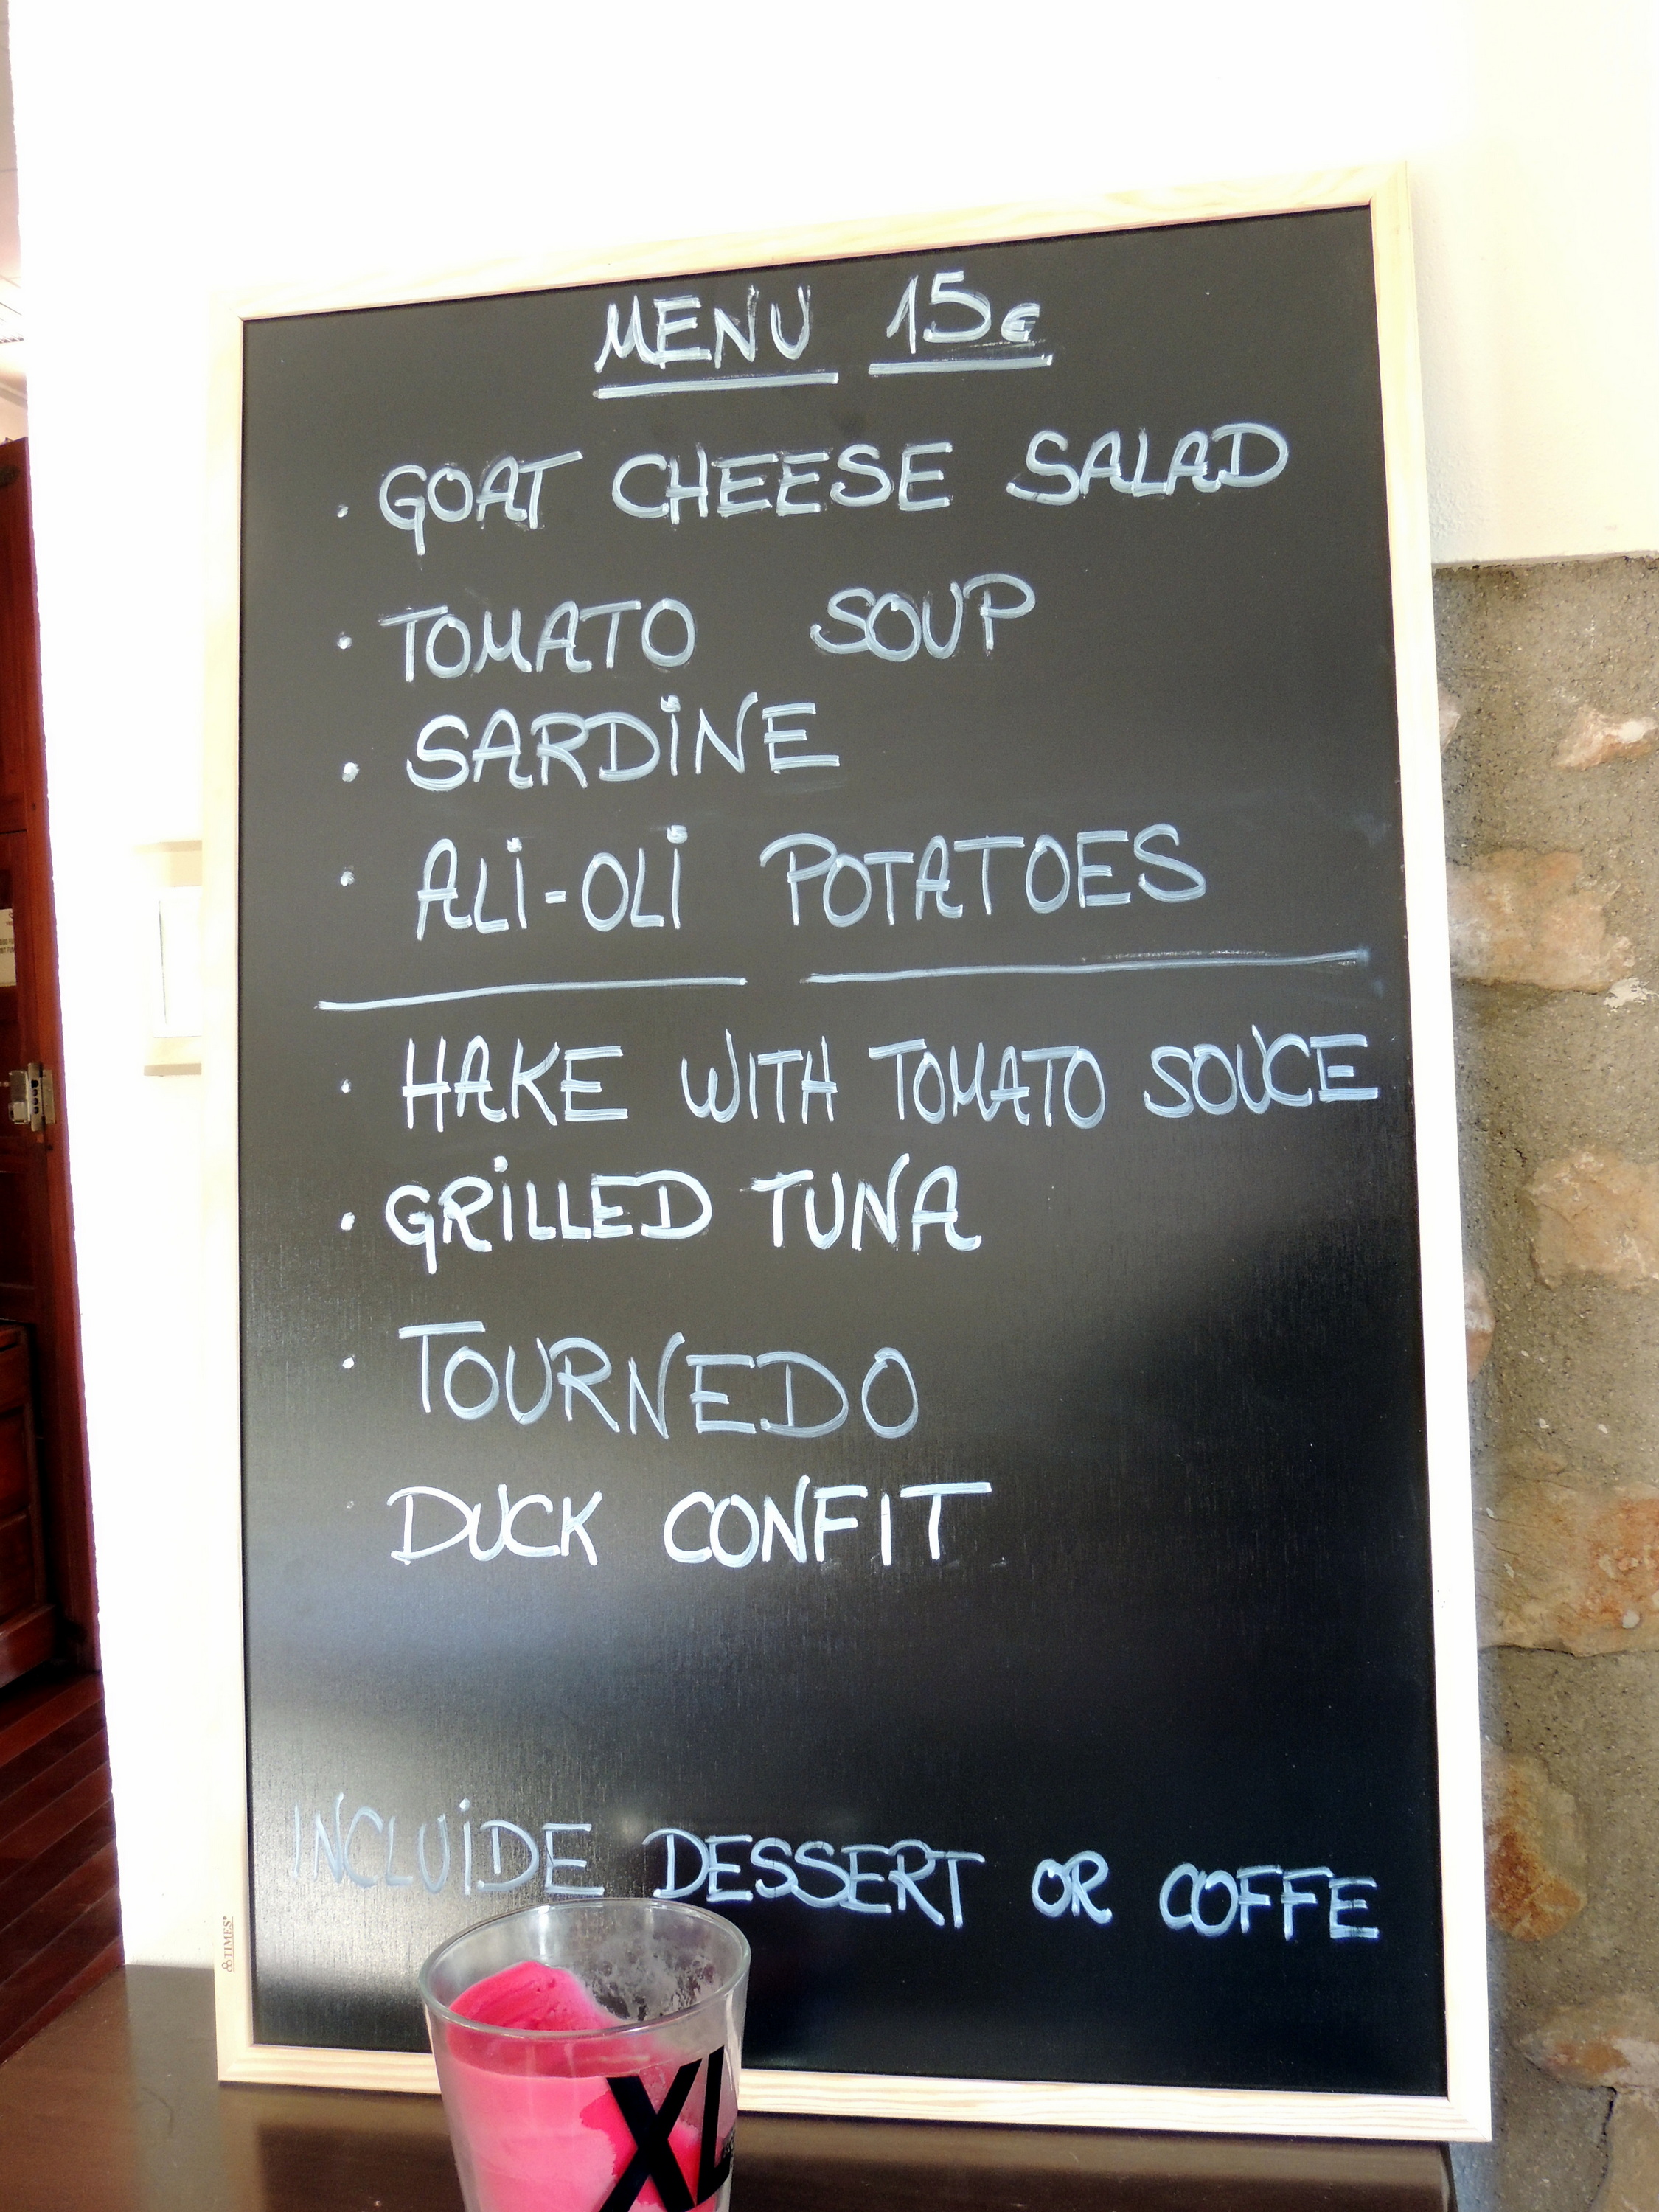 MENU 15€
· GOAT CHEESE SALAD
· TOMATO SOUP
· SARDINE
· ALI-OLI POTATOES
· HAKE WITH TOMATO SOUCE
· GRILLED TUNA
· TOURNEDO
· DUCK CONFIT
INCLUIDE DESSERT OR COFFE
TIMES
XL